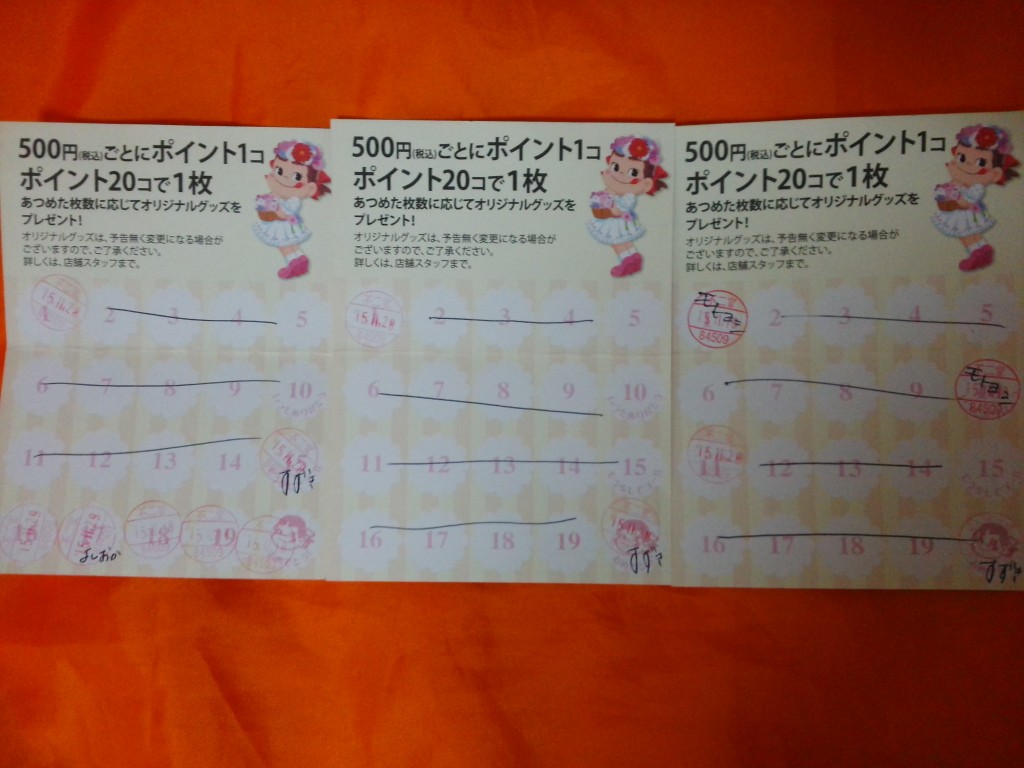 500円(税込)ごとにポイント1コ
ポイント20コで1枚
あつめた枚数に応じてオリジナルグッズを
プレゼント!
オリジナルグッズは、予告無く変更になる場合が
ございますので、ご了承ください。
詳しくは、店舗スタッフまで。
2 3 4 5
6 7 8 9 10
11 12 13 14 15
すずき
18 19
よしおか
500円(税込)ごとにポイント1コ
ポイント20コで1枚
あつめた枚数に応じてオリジナルグッズを
プレゼント!
オリジナルグッズは、予告無く変更になる場合が
ございますので、ご了承ください。
詳しくは、店舗スタッフまで。
15.11.28
2 3 4 5
6 7 8 9 10
11 12 13 14 15
16 17 18 19
すずき
500円(税込)ごとにポイント1コ
ポイント20コで1枚
あつめた枚数に応じてオリジナルグッズを
プレゼント!
オリジナルグッズは、予告無く変更になる場合が
ございますので、ご了承ください。
詳しくは、店舗スタッフまで。
84509
2 3 4 5
6 7 8 9
84509
11 12 13 14 15
16 17 18 19
すずき